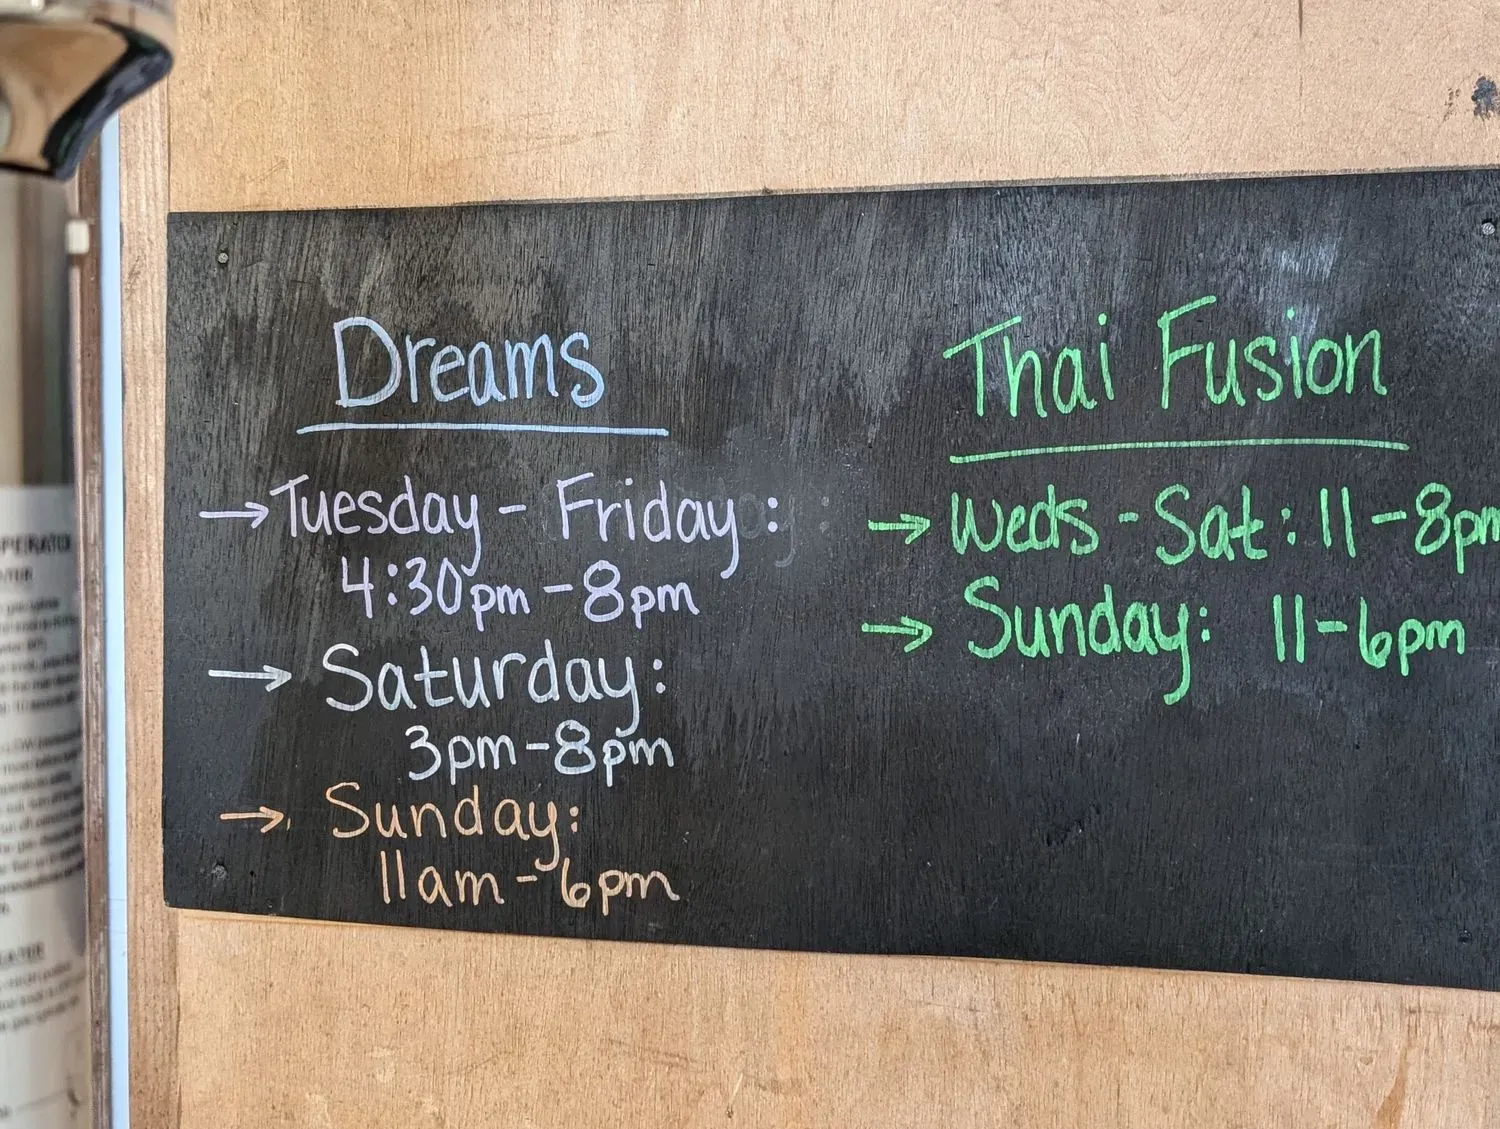 Dreams
→ Tuesday - Friday:
4:30pm - 8pm
→ Saturday:
3pm - 8pm
→ Sunday:
11am - 6pm
Thai Fusion
→ Weds - Sat: 11 - 8pm
→ Sunday: 11 - 6pm